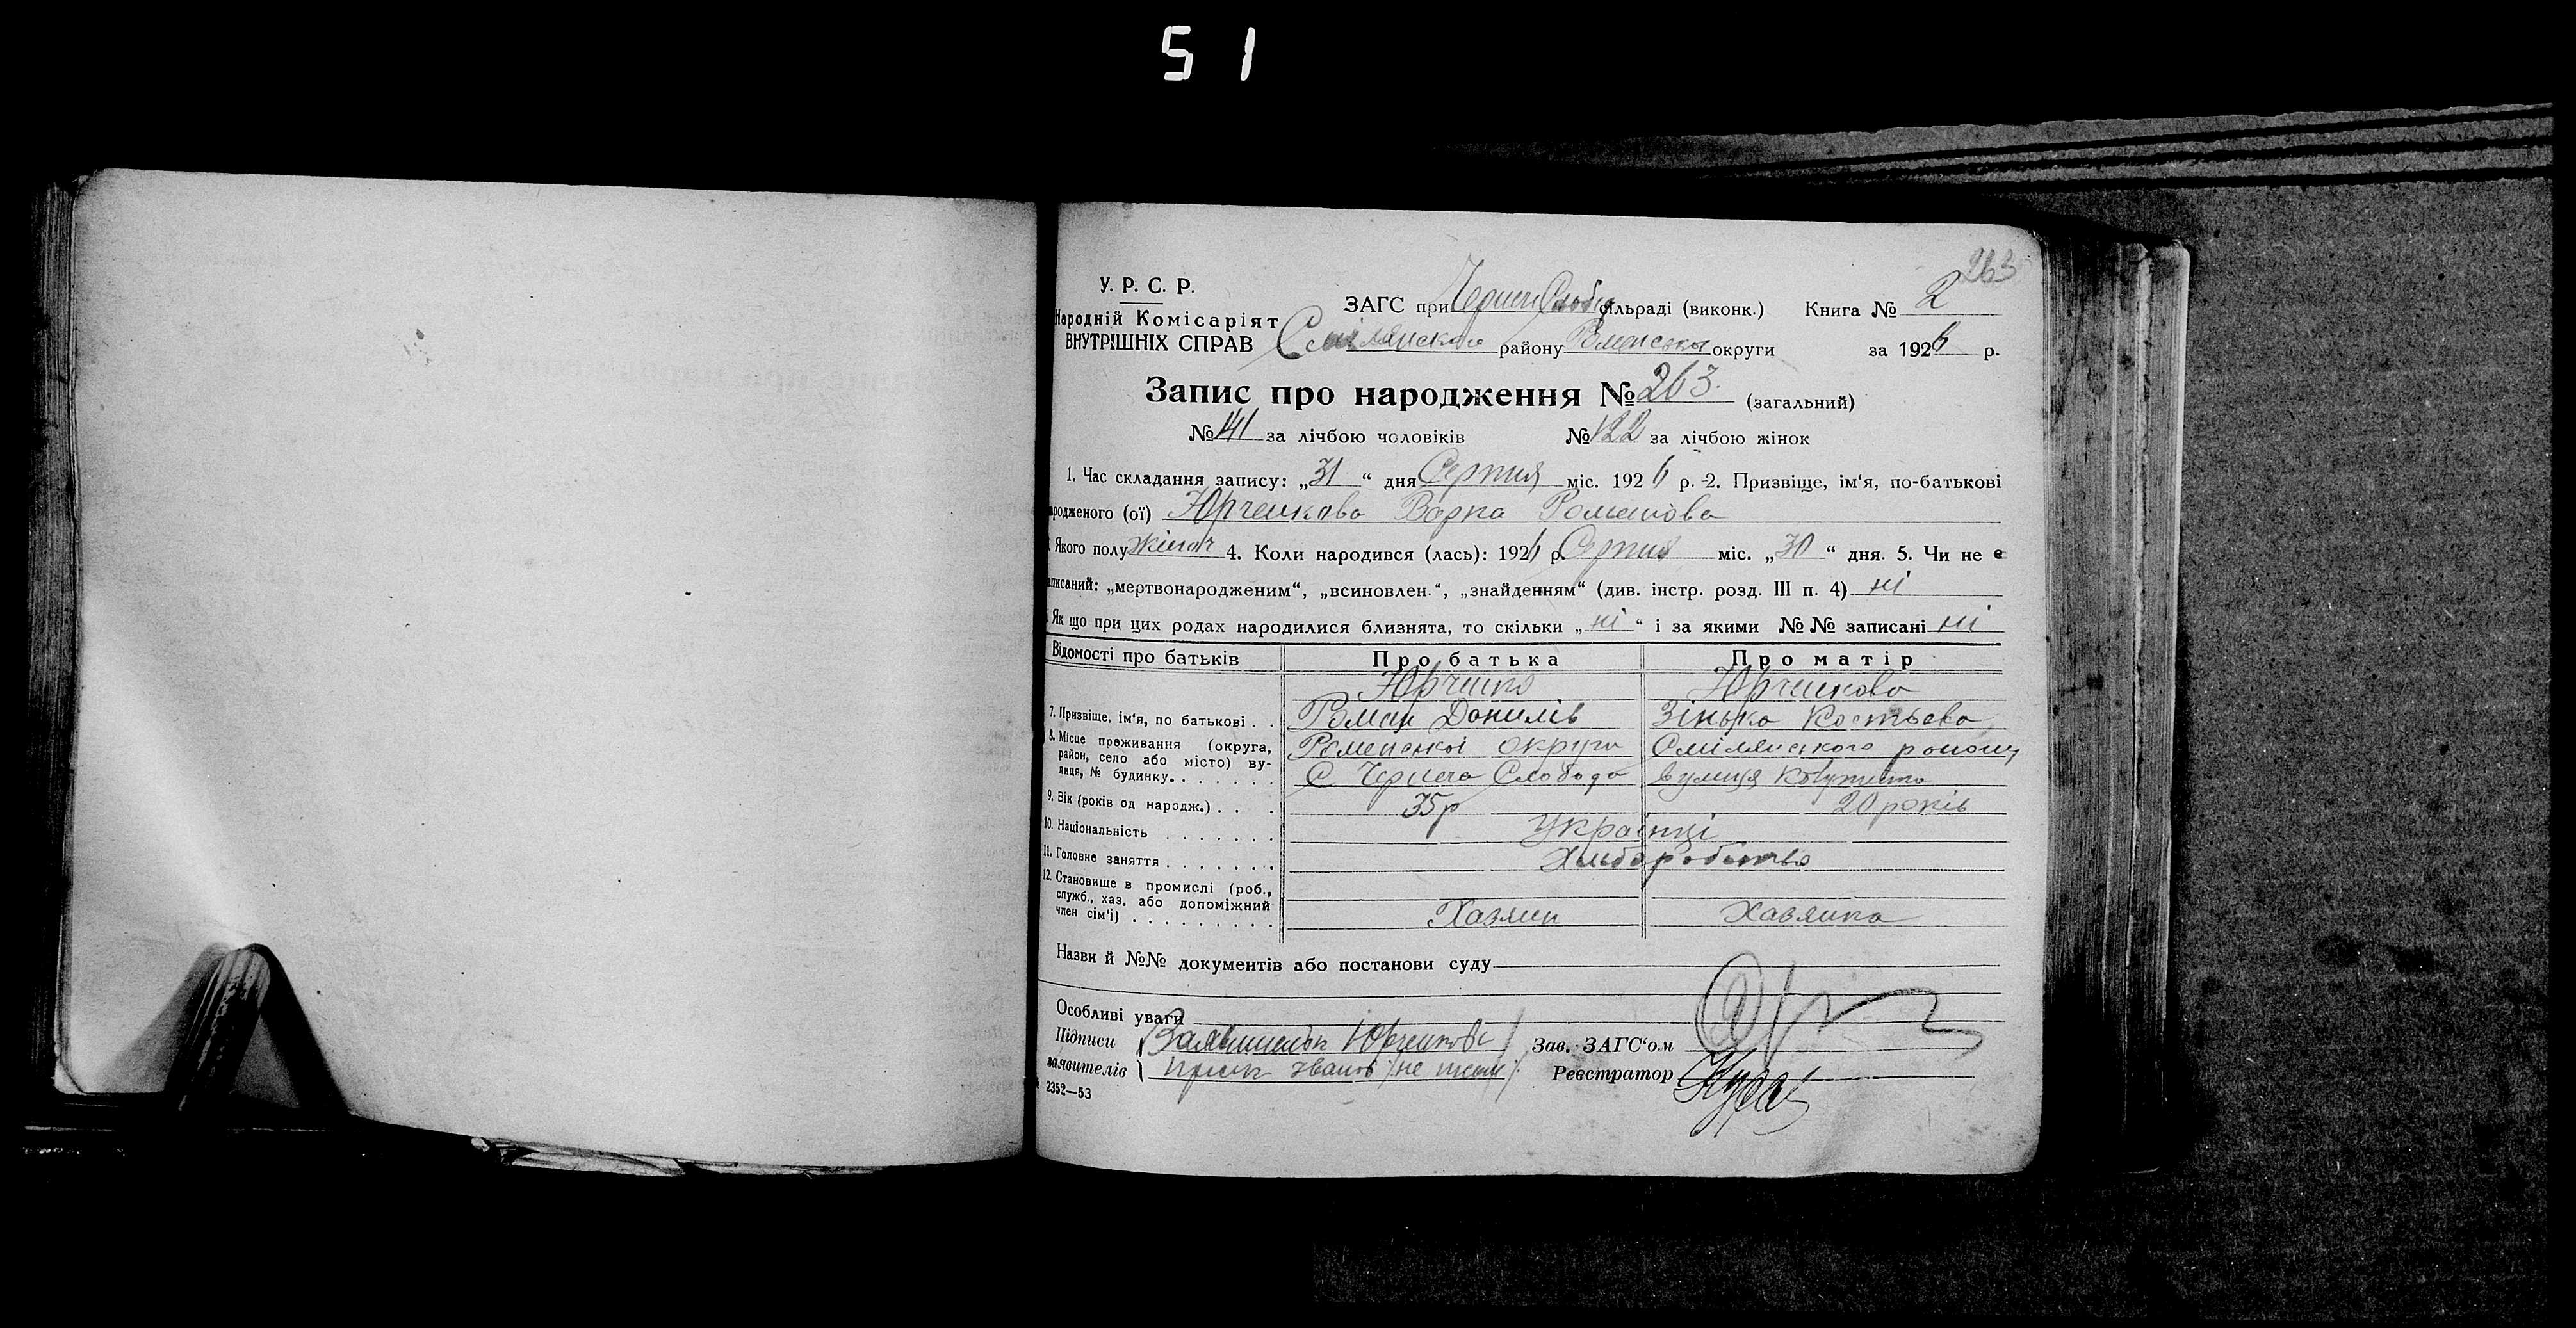 51
263
У. Р. С. Р.
Народній Комісаріят
ВНУТРІШНІХ СПРАВ
ЗАГС при Чернеч Слобід сільраді (виконк.) Книга № 2
Смілянского району Роменської округи за 1926 р.
Запис про народження № 263. (загальний)
№ 141 за лічбою чоловіків № 122 за лічбою жінок
1. Час складання запису: „31“ дня Серпня міс. 1926 р. 2. Призвіще, ім‘я, по-батькові
родженого (ої) Юрченкова Варка Романова
Якого полу жіноч 4. Коли народився (лась): 1926 р. Серпня міс. „30“ дня. 5. Чи не є
записаний: „мертвонародженим“, „всиновлен.“, „знайденням“ (див. інстр. розд. III п. 4) ні
Як що при цих родах народилися близнята, то скільки „ні“ і за якими №№ записані ні
Відомості про батьків Про батька Про матір
Юрченко Юрченкова
7. Призвіще, ім‘я, по батькові . . Роман Данилів Зінька Костьева
8. Місце проживання (округа, район, село або місто) вулиця, № будинку. Роменської округи Смілянського району
С Чернеча Слобода вулиця
9. Вік (років од народж.) . . . 35р 20 років
10. Національність . . . . . . . Українці
11. Головне заняття . . . . . . . Хліборобство
12. Становище в промислі (роб., служб., хаз. або допоміжний член сім‘ї) . . . . . . . . . Хазяин Хазяйка
Назви й №№ документів або постанови суду
Особливі уваги
Підписи Юрченкова Зав. ЗАГС‘ом
заявителів Реєстратор
2352—53